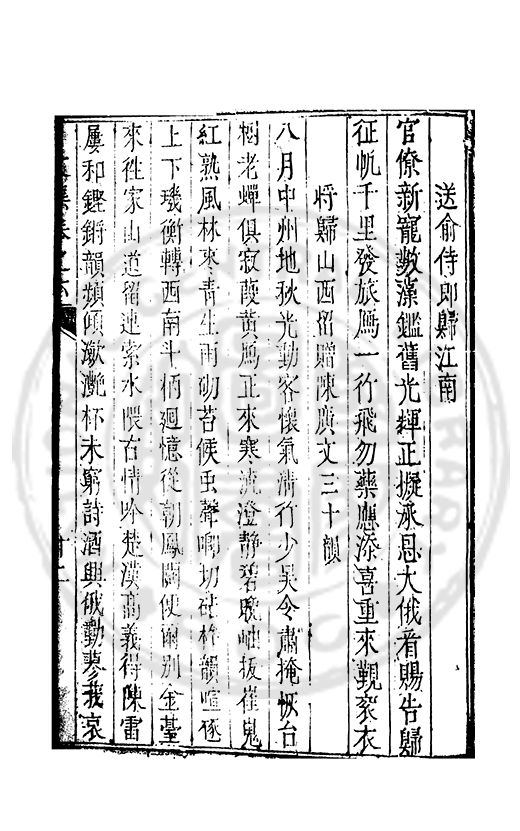 送俞侍即歸江南
官僚新寵數藻鑑舊光輝正擬承恩大俄看賜告歸
征帆千里發旅鴈一行飛勿藥應添喜重來覲衮衣
將歸山西留贈陳廣文三十韻
八月中州地秋光動客懷氣清行少吴令肅掩恢台
梧老蟬俱寂葭黄鴈正來寒流澄静碧晚岫拔崔嵬
紅熟風林棗青生雨砌苔候虫聲喞切砧杵韻喧豗
上下璣衡轉西南斗柄迴憶從朝鳳闕便爾别金臺
來徃家山道留連索水隈古情吟楚漢高義得陳雷
屢和鏗鏘韻頻傾瀲灧杯未窮詩酒興俄動蓼莪哀
集卷之六